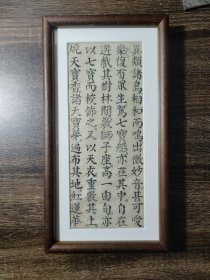 異類諸鳥相和而鳴出微妙音甚可愛
樂復有眾生駕七寶船亦在其中自在
遊戲其樹林間敷師子座高一由旬亦
以七寶而挍飾之又以天衣重敷其上
燒天寶香諸天寶華遍布其地紅蓮華